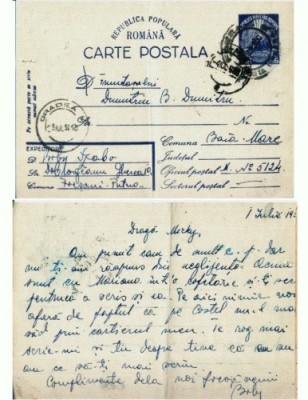 REPUBLICA POPULARĂ
ROMÂNĂ
CARTE POSTALA
Dumitru B. Dumitru
No.
Comuna Baia-Mare
Judeţul
Oficiul postal No 5124
Sectorul postal
ORADEA
EXPEDITOR
D
Str.
Comuna Focşani-Putna
1 Iulie 19
Dragă
Am primit cam de mult c. p. dar
nu ţi-am răspuns din neglijenţă. Acum
sunt cu Mariana într-o şi-ţi
a scris şi ea. Pe aici nimic nou
afară de faptul că pe Costel nu-l mai
văd prin cartierul meu. Te rog mai
scrie-mi şi tu despre tine că am
am ce să-ţi mai scriu
Complimente dela noi
Boby